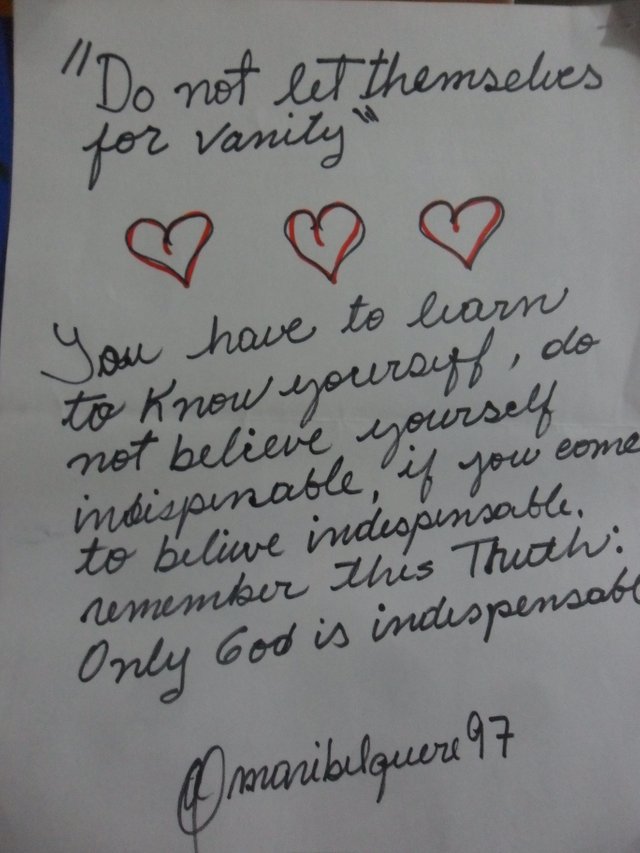 "Do not let themselves
for vanity"
You have to learn
to know yourself, do
not believe yourself
indispensable, if you come
to believe indespensable.
remember this Truth:
Only God is indespensabl
@maribelquere97